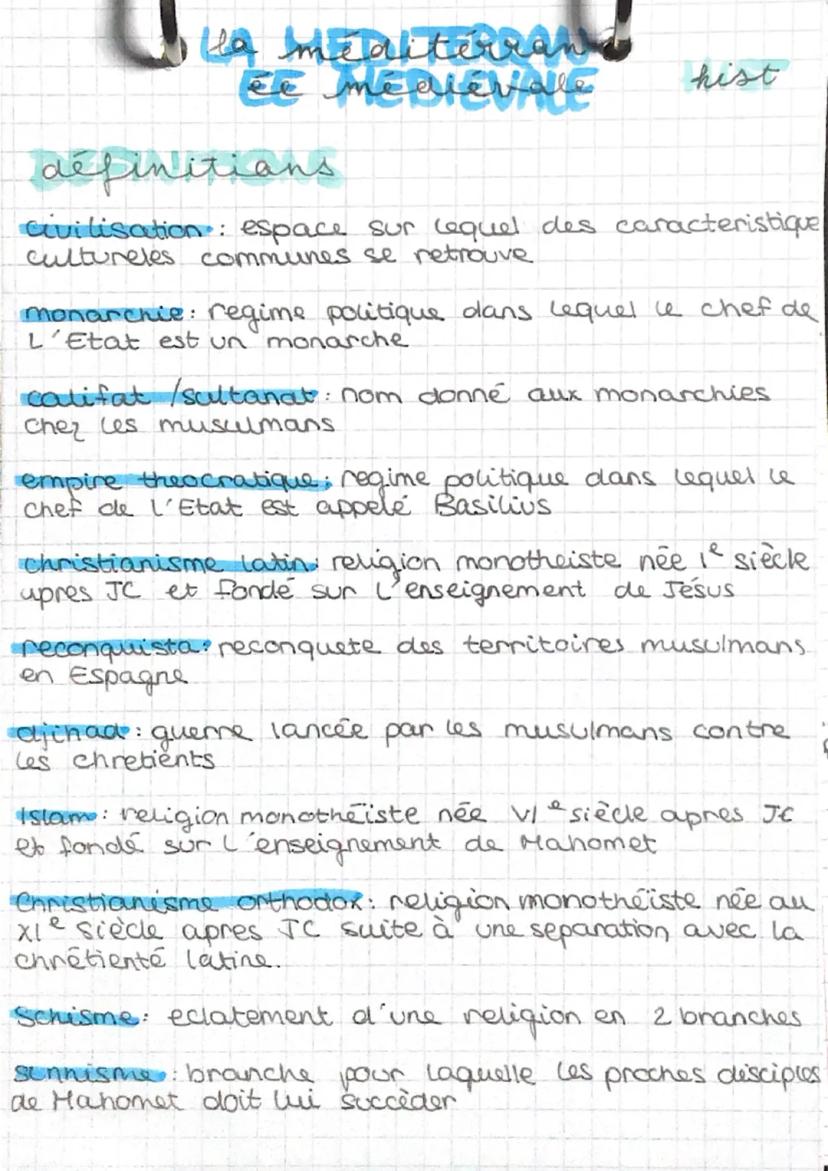 la méditérran
ée médiévale
hist
définitions
civilisation : espace sur lequel des caracteristique
cultureles communes se retrouve
monarchie : regime politique dans lequel le chef de
L'Etat est un monarche
califat /sultanat : nom donné aux monarchies
chez les musulmans
empire theocratique : regime politique dans lequel le
chef de l'Etat est appelé Basilius
christianisme latin : religion monotheiste née 1e siècle
apres JC et fondé sur l'enseignement de Jésus
reconquista : reconquete des territoires musulmans
en Espagne
djihad : guerre lancée par les musulmans contre
les chretients
Islam : religion monothéiste née VIe siècle apres JC
et fondé sur l'enseignement de Mahomet
Christianisme orthodox : religion monothéiste née au
XIe siècle apres JC suite à une separation avec la
chrétienté latine.
Schisme : eclatement d'une religion en 2 branches
sunnisme : branche pour laquelle les proches disciples
de Mahomet doit lui succèder